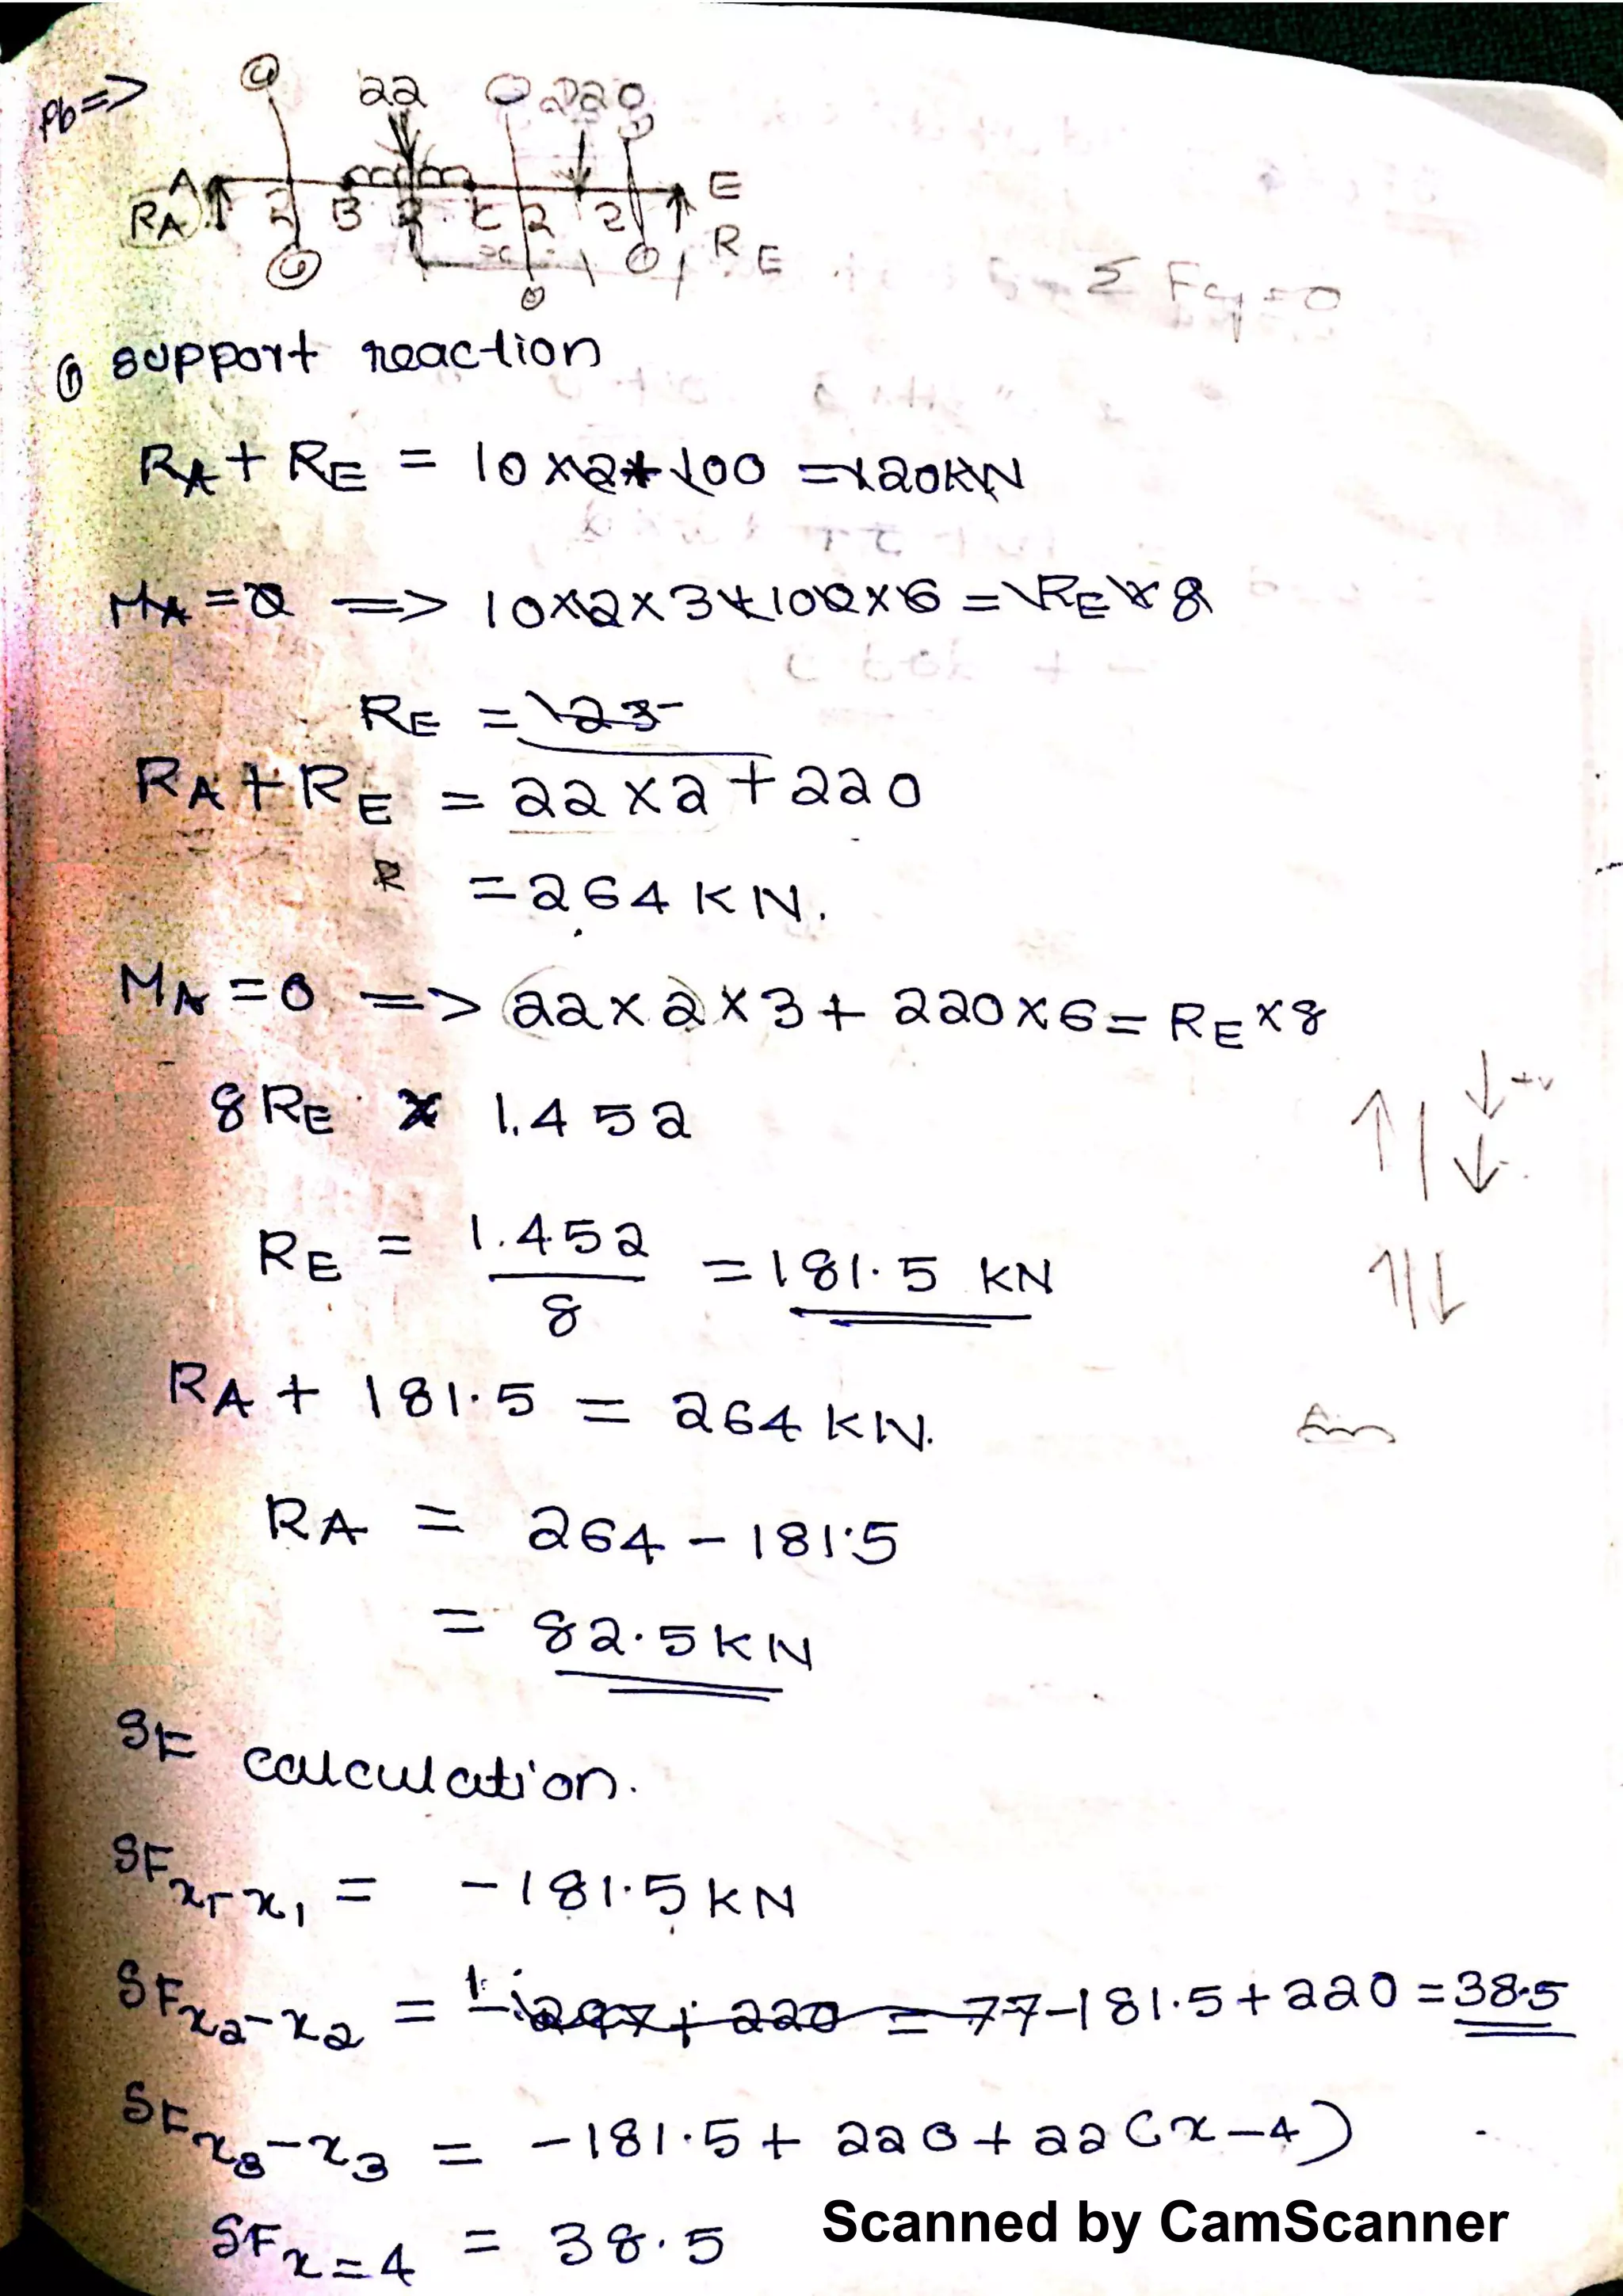 Pb=>
22 220
A E
RA 2 B 2 C 2 2 RE
x
Σ Fy=0
① support reaction
RA + RE = 10×2+100 =120KN
MA=0 => 10×2×3+100×6 = RE×8
RE = 123
RA+RE = 22×2+220
R = 264 KN.
MA=0 => 22×2×3+ 220×6= RE×8
8RE 1.452
RE = 1.452 / 8 = 181.5 KN
RA + 181.5 = 264 KN.
RA = 264 - 181.5
= 82.5KN
SF calculation.
SF x1-x1 = -181.5KN
SF x2-x2 = 77-181.5+220 = 38.5
SF x3-x3 = -181.5+ 220+22(x-4)
SF x=4 = 38.5
Scanned by CamScanner